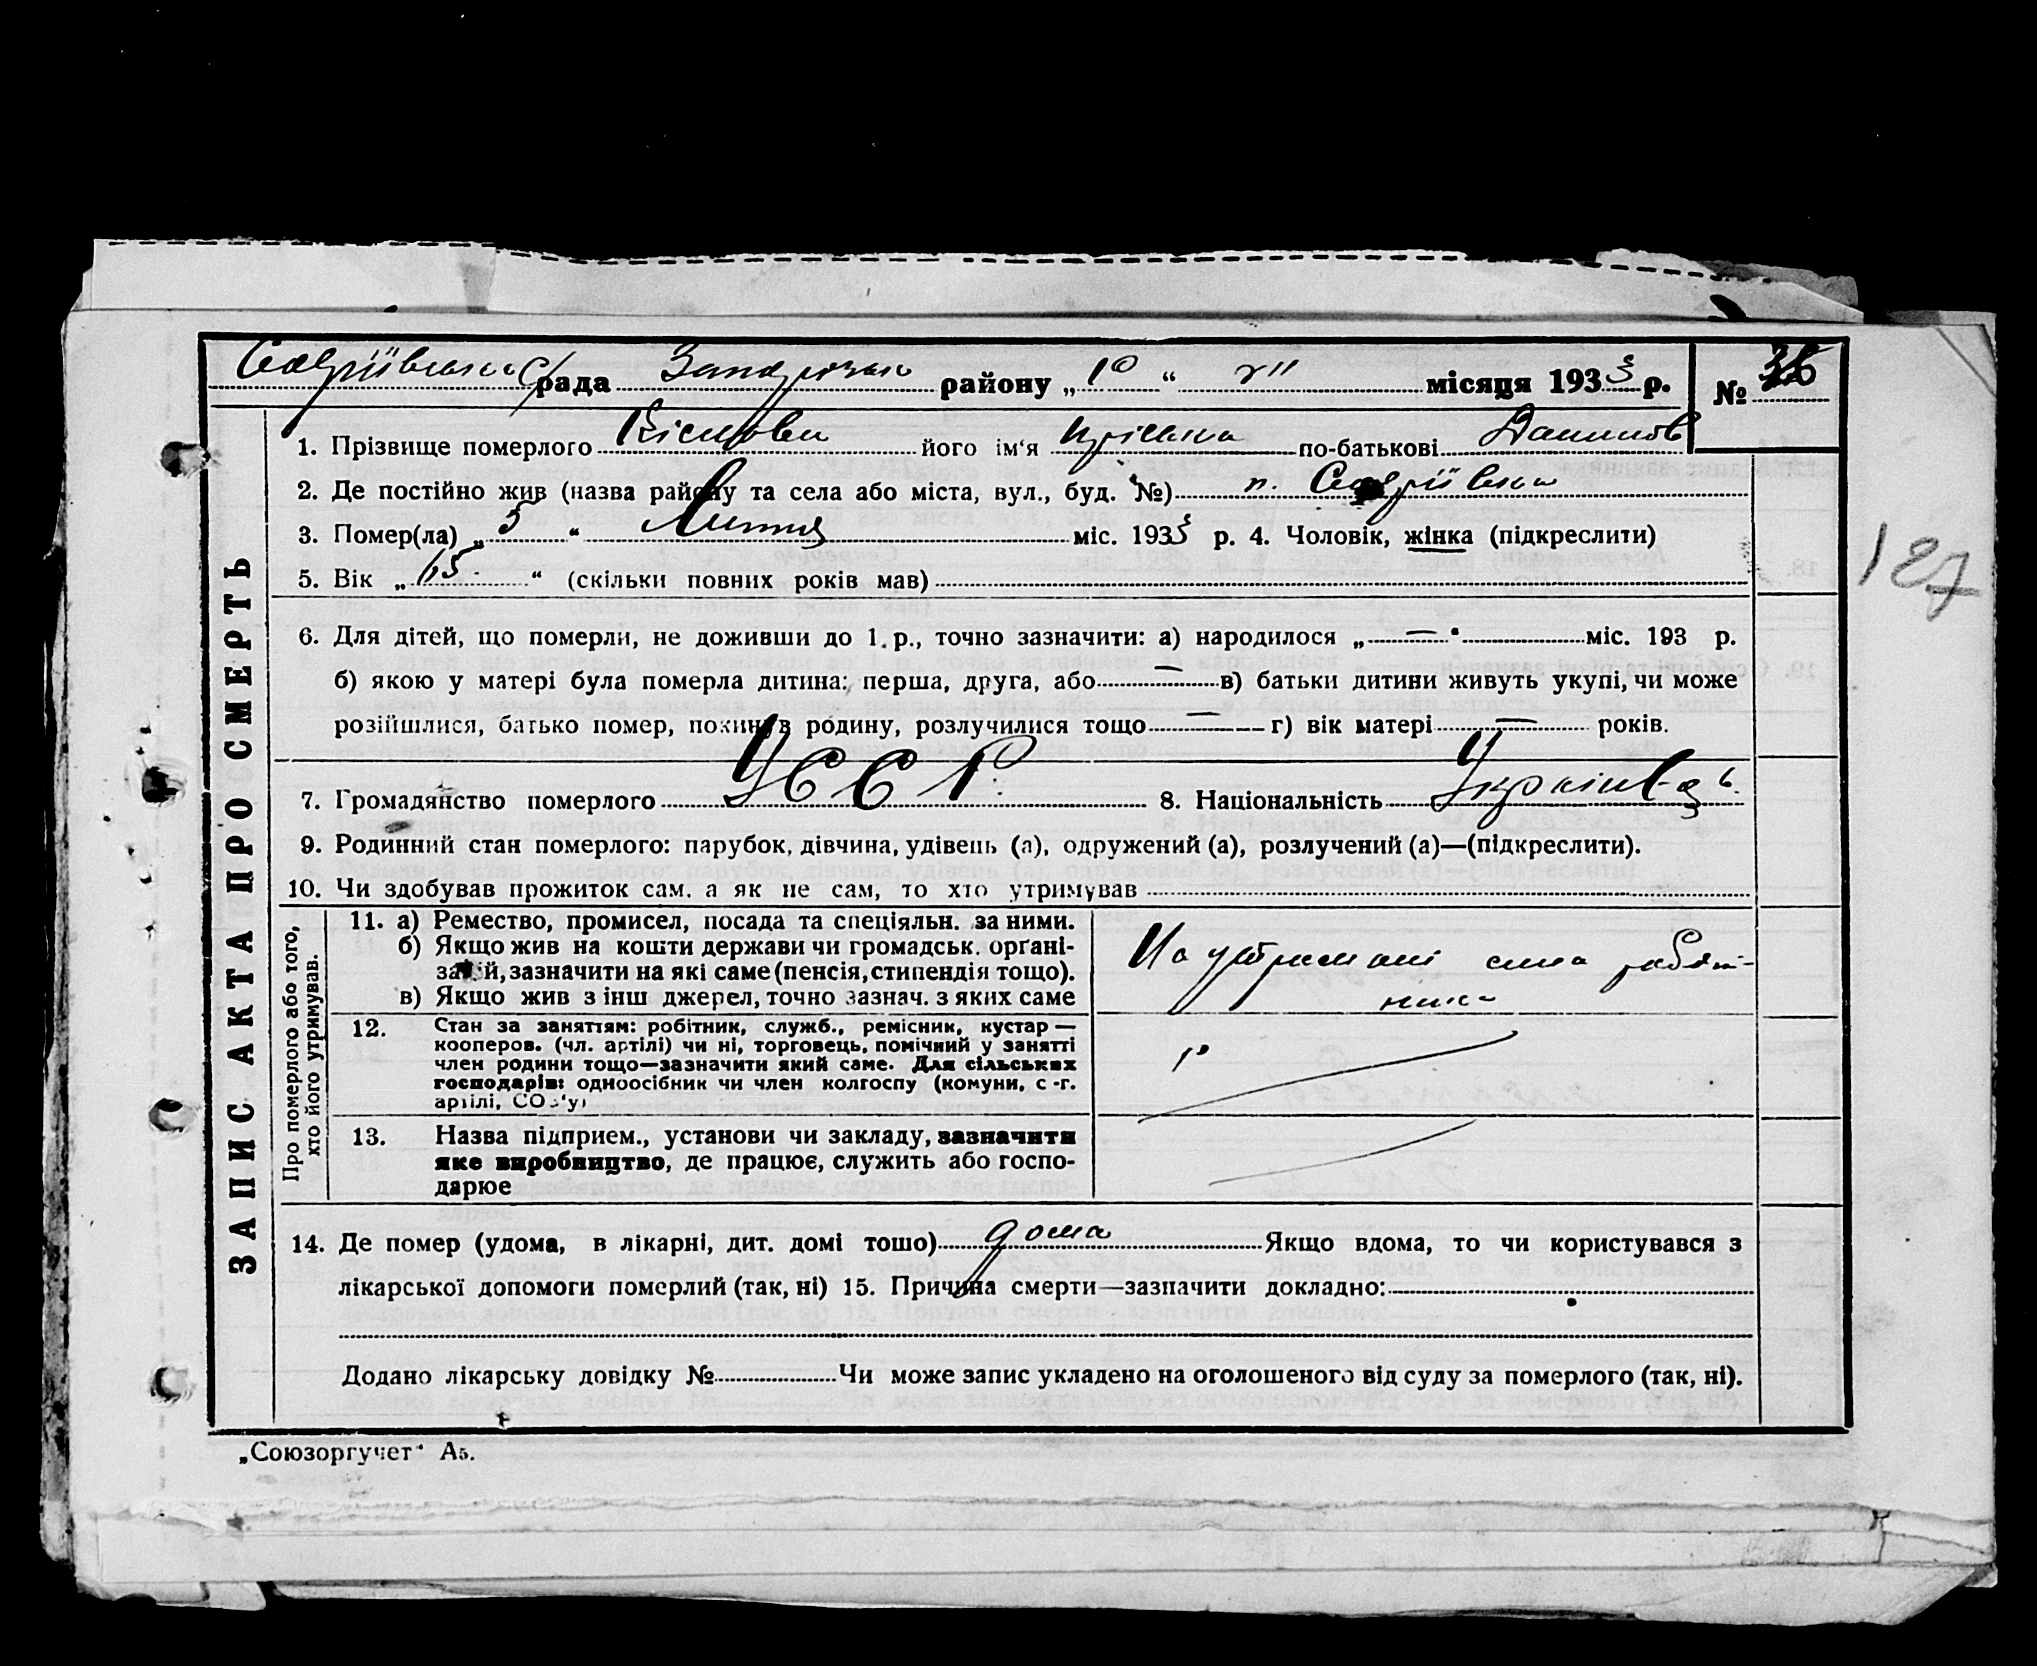 рада району „ 10 “ VII місяця 1933 р. №
1. Прізвище померлого його ім'я по-батькові
2. Де постійно жив (назва району та села або міста, вул., буд. №)
3. Помер(ла) „ 5 “ Липня міс. 1933 р. 4. Чоловік, жінка (підкреслити)
5. Вік „ 65 “ (скільки повних років мав)
6. Для дітей, що померли, не доживши до 1 р., точно зазначити: а) народилося „ — “ міс. 193 р.
б) якою у матері була померла дитина: перша, друга, або — в) батьки дитини живуть укупі, чи може
розійшлися, батько помер, покинув родину, розлучилися тощо — г) вік матері — років.
7. Громадянство померлого УССР 8. Національність Українець
9. Родинний стан померлого: парубок, дівчина, удівець (а), одружений (а), розлучений (а)—(підкреслити).
10. Чи здобував прожиток сам, а як не сам, то хто утримував
ЗАПИС АКТА ПРО СМЕРТЬ
Про померлого або того,
хто його утримував.
11. а) Ремество, промисел, посада та спеціяльн. за ними.
б) Якщо жив на кошти держави чи громадськ. орґані-
зацій, зазначити на які саме (пенсія, стипендія тощо).
в) Якщо жив з інш джерел, точно зазнач. з яких саме
На утриманні сина робіт-
ника
12. Стан за заняттям: робітник, служб., ремісник, кустар —
кооперов. (чл. артілі) чи ні, торговець, помічний у занятті
член родини тощо—зазначити який саме. Для сільських
господарів: одноосібник чи член колгоспу (комуни, с.-г.
артілі, СОЗ'у)
13. Назва підприєм., установи чи закладу, зазначити
яке виробництво, де працює, служить або госпо-
дарює
14. Де помер (удома, в лікарні, дит. домі тошо) дома Якщо вдома, то чи користувався з
лікарської допомоги померлий (так, ні) 15. Причина смерти—зазначити докладно:
Додано лікарську довідку № Чи може запис укладено на оголошеного від суду за померлого (так, ні).
„Союзоргучет“ А5.
187